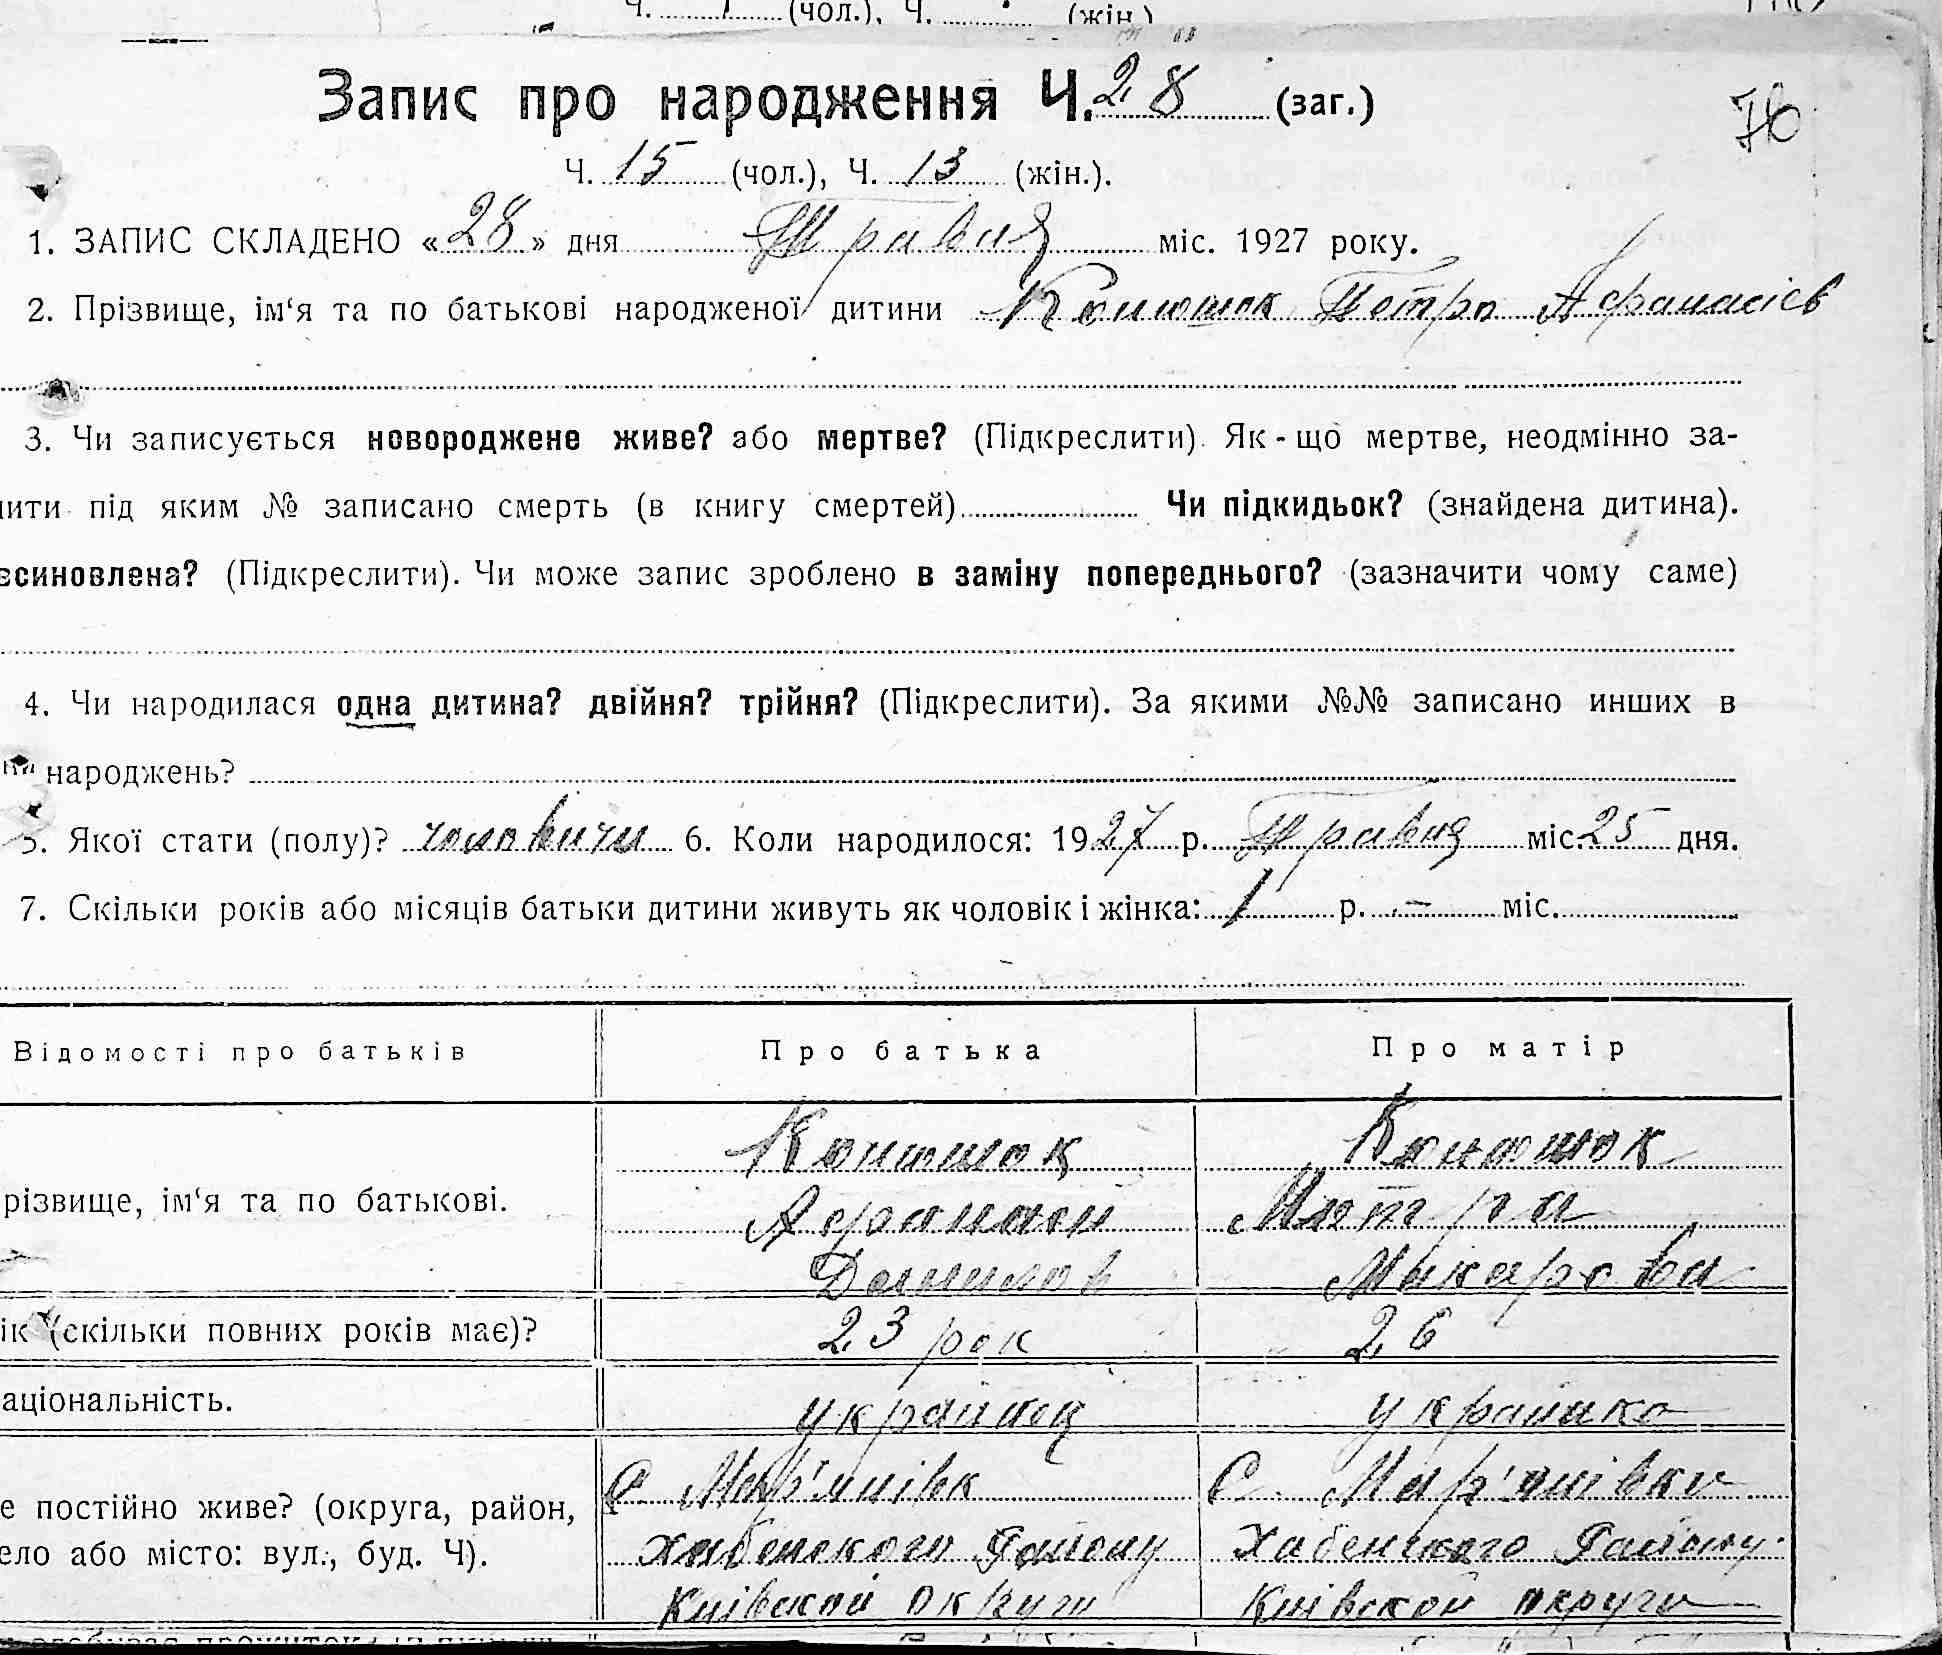 Ч. (чол.), Ч. (жін.)
Запис про народження Ч. 28 (заг.)
76
Ч. 15 (чол.), Ч. 13 (жін.).
1. ЗАПИС СКЛАДЕНО «28» дня Травня міс. 1927 року.
2. Прізвище, ім‘я та по батькові народженої дитини Конюшок Петро Афанасієв
3. Чи записується новороджене живе? або мертве? (Підкреслити). Як-що мертве, неодмінно за-
ити під яким № записано смерть (в книгу смертей) Чи підкидьок? (знайдена дитина).
всиновлена? (Підкреслити). Чи може запис зроблено в заміну попереднього? (зазначити чому саме)
4. Чи народилася одна дитина? двійня? трійня? (Підкреслити). За якими №№ записано инших в
народжень?
5. Якої стати (полу)? чоловичи 6. Коли народилося: 1927 р. Травня міс. 25 дня.
7. Скільки років або місяців батьки дитини живуть як чоловік і жінка: 1 р. - міс.
Відомості про батьків Про батька Про матір
Конюшок Конюшок
різвище, ім‘я та по батькові. Афанасій Мотря
Данилов Макарова
ік (скільки повних років має)? 23 рок 26
аціональність. украйнец украинка
С Мар'янівк С. Мар'янівки
е постійно живе? (округа, район, Хабенского Району Хабенского Району
ело або місто: вул., буд. Ч). Київской округи Київской округи